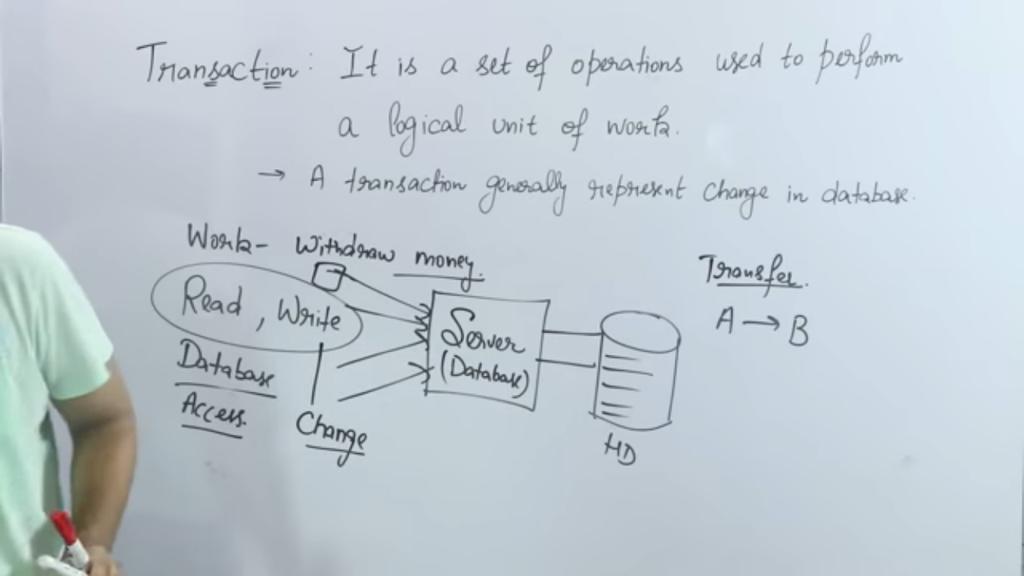 Transaction: It is a set of operations used to perform
a logical unit of work.
→ A transaction generally represent change in database.
Work- Withdraw money.
Read, Write
Database
Access.
Change
Server
(Database)
HD
Transfer.
A → B